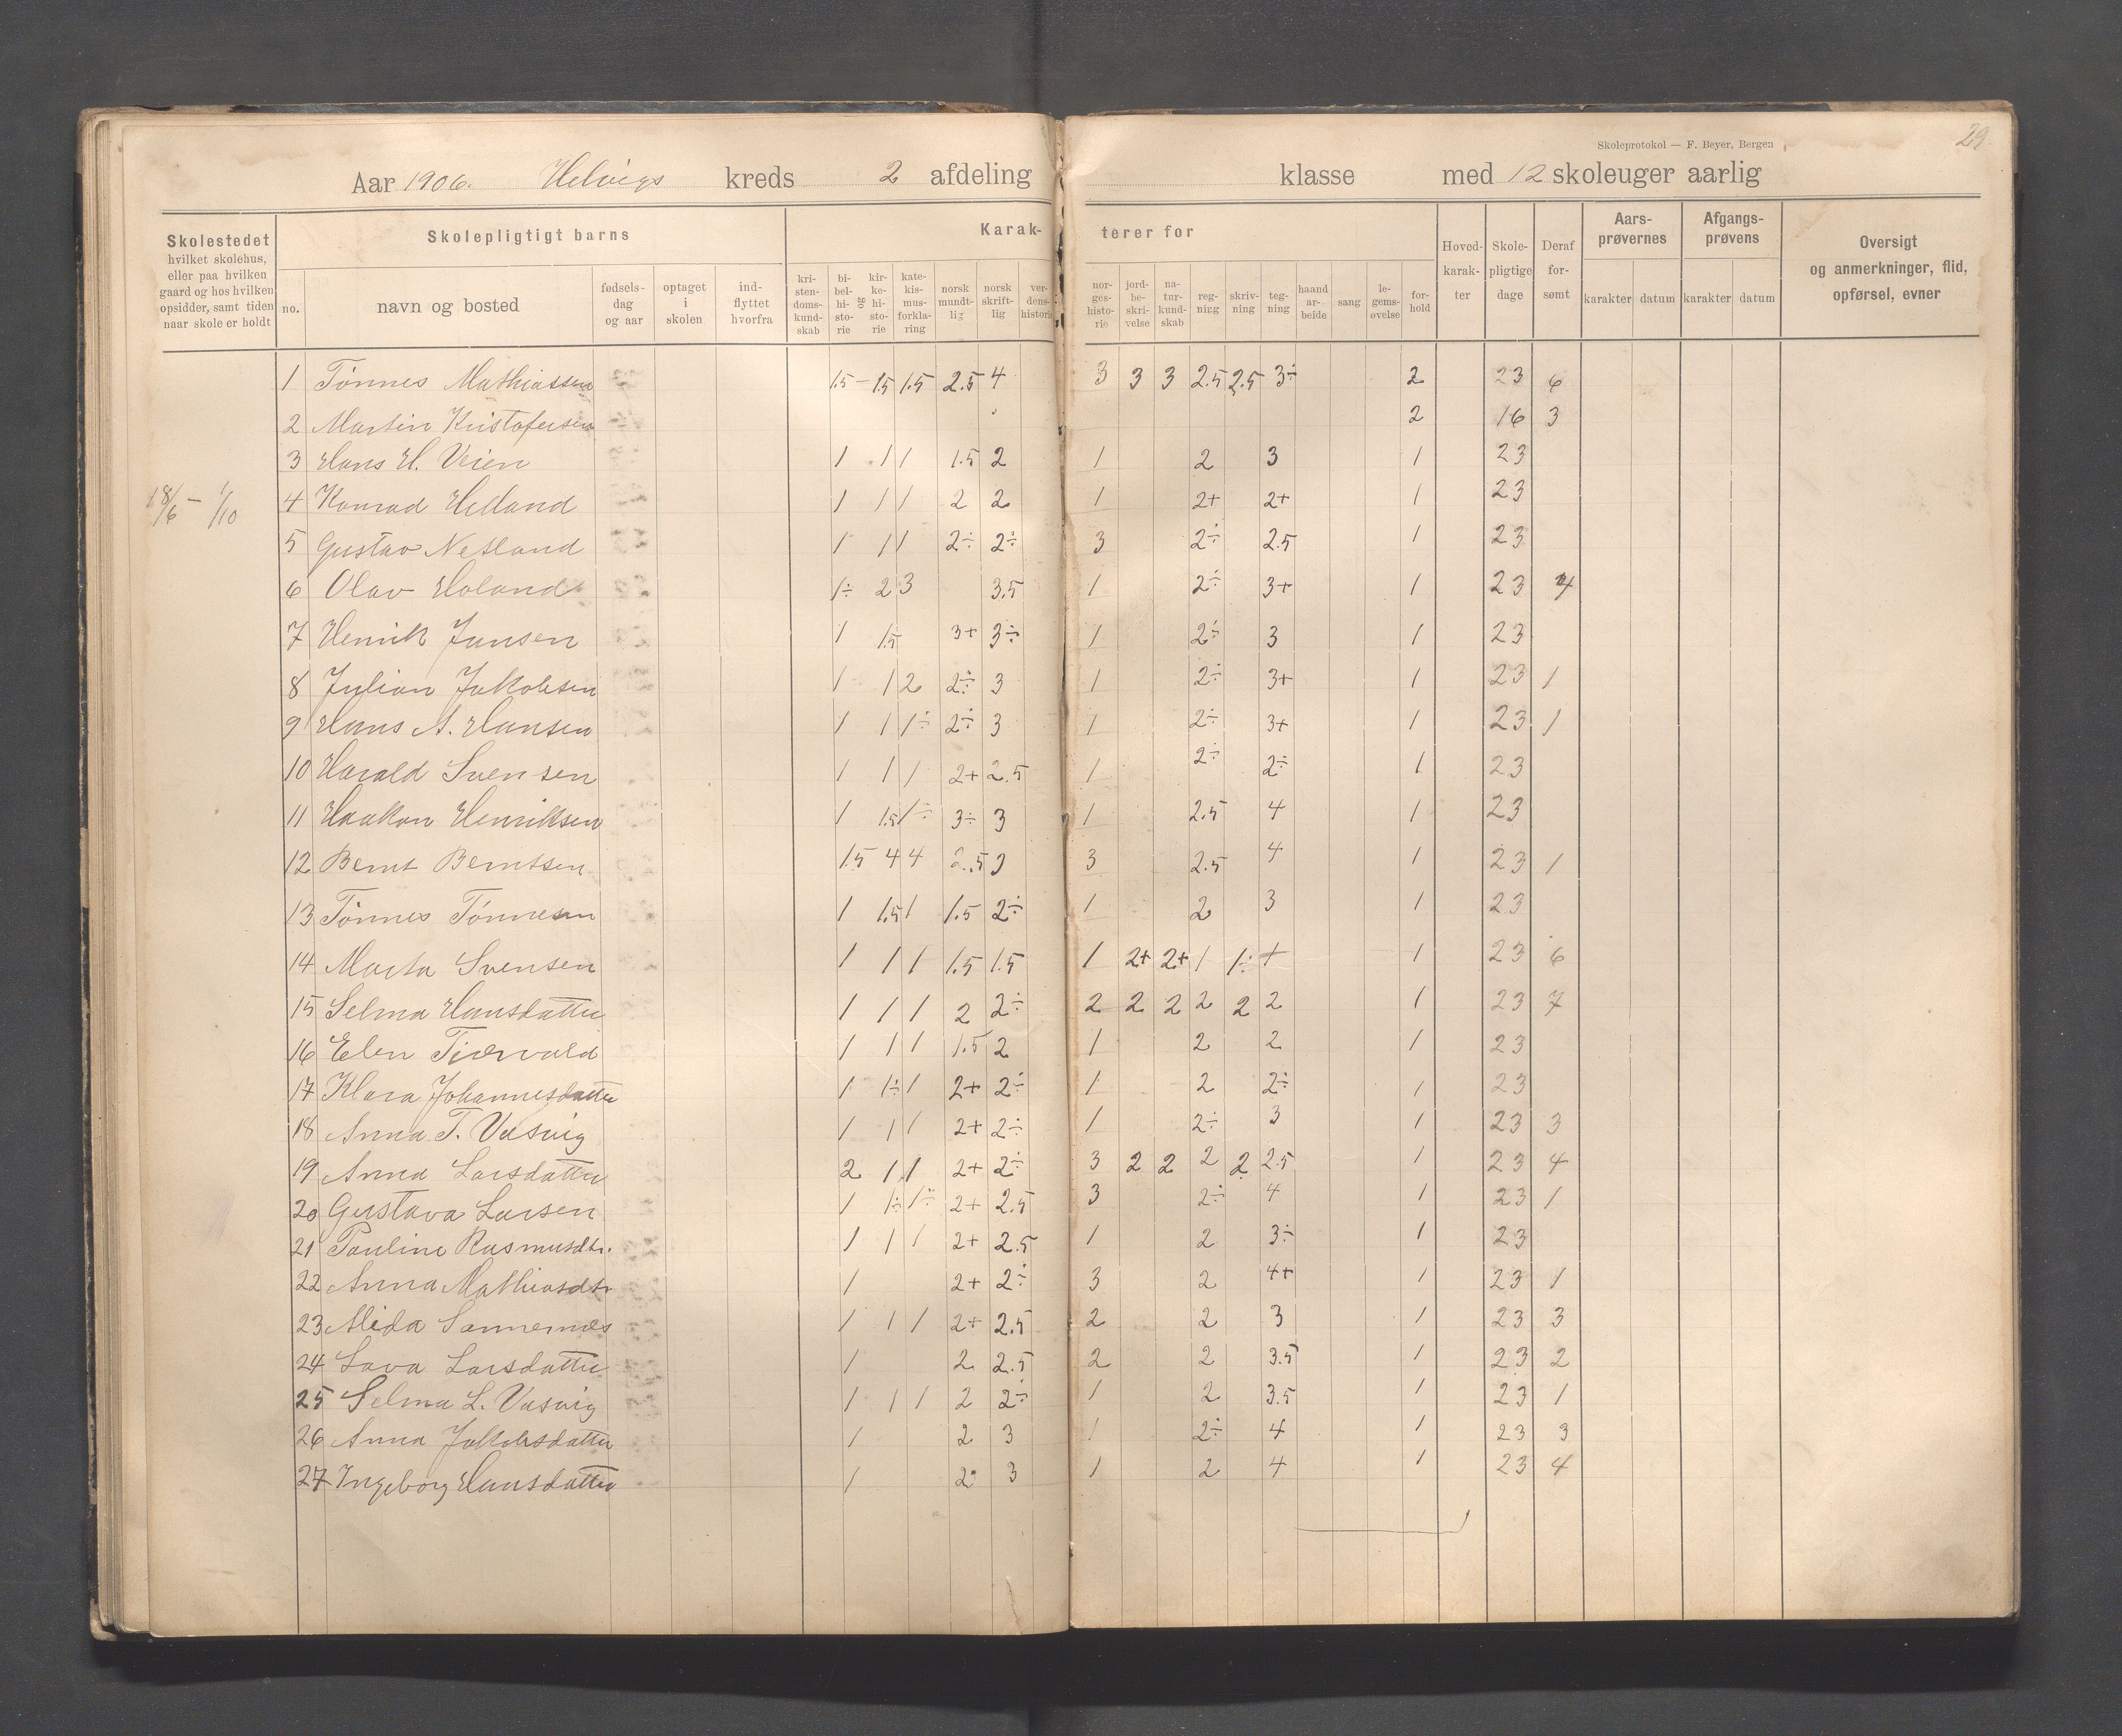 Skoleprotokol — F. Beyer, Bergen
29.
Aar 1906. Helvigs kreds 2 afdeling klasse med 12 skoleuger aarlig
Skolestedet hvilket skolehus, eller paa hvilken gaard og hos hvilken opsidder, samt tiden naar skole er holdt
Skolepligtigt barns
Karakterer for
no.
navn og bosted
fødselsdag og aar
optaget i skolen
indflyttet hvorfra
kristendomskundskab
bibelhistorie
og
kirkehistorie
katekismusforklaring
norsk mundtlig
norsk skriftlig
verdenshistorie
norgeshistorie
jordbeskrivelse
naturkundskab
regning
skrivning
tegning
haandarbeide
sang
legemsøvelse
forhold
Hovedkarakter
Skolepligtige dage
Deraf forsømt
Aarsprøvernes
karakter datum
Afgangsprøvens
karakter datum
Oversigt og anmerkninger, flid, opførsel, evner
18/6 – 1/10
1 Tönnes Mathiassen 1.5 – 1.5 1.5 2.5 4 3 3 3 2.5 2.5 3÷ 2 23 6
2 Martin Kristofersen 2 16 3
3 Hans H. Veien 1 1 1 1.5 2 1 2 3 1 23
4 Konrad Helland 1 1 1 2 2 1 2+ 2+ 1 23
5 Gustav Netland 1 1 1 2÷ 2÷ 3 2÷ 2.5 1 23
6 Olav Holand 1÷ 2 3 3.5 1 2÷ 3+ 1 23 4
7 Henrik Jansen 1 1.5 3+ 3÷ 1 2÷ 3 1 23
8 Julian Jakobsen 1 1 2 2÷ 3 1 2÷ 3+ 1 23 1
9 Hans A. Hansen 1 1 1÷ 2÷ 3 1 2÷ 3+ 1 23 1
10 Harald Svensen 1 1 1 2+ 2.5 1 2÷ 2÷ 1 23
11 Haakon Henriksen 1 1.5 1÷ 3÷ 3 1 2.5 4 1 23
12 Bernt Berntsen 1.5 4 4 2.5 3 3 2.5 4 1 23 1
13 Tönnes Tönnesen 1 1.5 1 1.5 2÷ 1 2 3 1 23
14 Marta Svensen 1 1 1 1.5 1.5 1 2+ 2+ 1 1÷ 1 1 23 6
15 Selma Hansdatter 1 1 1 2 2÷ 2 2 2 2 2 2 1 23 7
16 Elen Tjervald 1 1 1 1.5 2 1 2 2 1 23
17 Klara Johannesdatter 1 1÷ 1 2+ 2÷ 1 2 2÷ 1 23
18 Anna T. Vasvig 1 1 1 2+ 2÷ 1 2÷ 3 1 23 3
19 Anna Larsdatter 2 1 1 2+ 2÷ 3 2 2 2 2 2.5 1 23 4
20 Gustava Larsen 1 1÷ 1÷ 2+ 2.5 3 2÷ 4 1 23 1
21 Pauline Rasmusdtr. 1 1 1 2+ 2.5 1 2 3÷ 1 23
22 Anna Mathiasdtr 1 2+ 2÷ 3 2 4+ 1 23 1
23 Alida Sannernæs 1 1 1 2+ 2.5 2 2 3 1 23 3
24 Lava Larsdatter 1 2 2.5 2 2 3.5 1 23 2
25 Selma L. Vasvig 1 1 1 2 2÷ 1 2 3.5 1 23 1
26 Anna Jakobsdatter 1 2 3 1 2÷ 4 1 23 3
27 Ingeborg Hansdatter 1 2 3 1 2 4 1 23 4